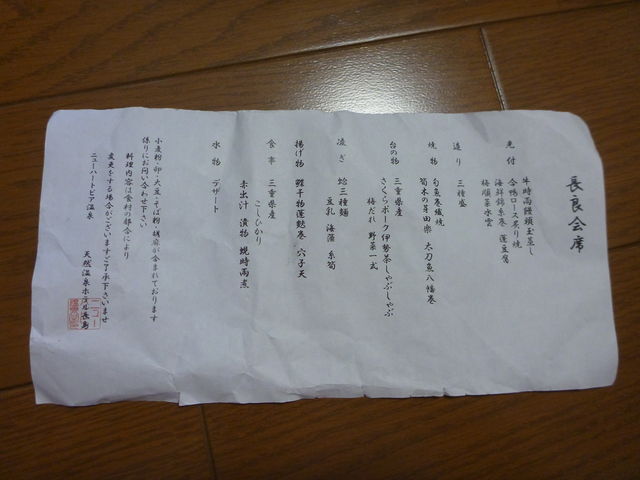 長良会席
先付 牛時雨饅頭玉蒸し
合鴨ロース炙り焼
海鮮錦糸巻 蓬豆腐
梅順菜水雲
造り 三種盛
焼物 旬魚巻繊焼
筍木の芽田楽 太刀魚八幡巻
台の物 三重県産
さくらポーク伊勢茶しゃぶしゃぶ
梅だれ 野菜一式
凌ぎ 蛤三種麺
豆乳 海藻 糸筍
揚げ物 鰹干物蓬麩巻 穴子天
食事 三重県産
こしひかり
赤出汁 漬物 蜆時雨煮
水物 デザート
小麦粉・卵・大豆・そば粉・胡麻が含まれております
係りにお問い合わせ下さい
料理内容は食材の都合により
変更をする場合がございますご了承下さいませ
ニューハートピア温泉
天然温泉ホテル長島